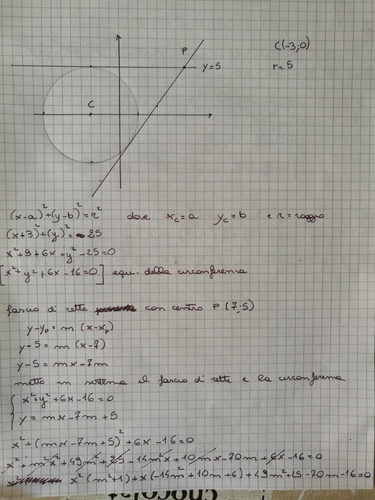 C(-3;0)
P
y=5
r=5
C
(x-a)²+(y-b)²=r² dove x_c=a y_c=b e r=raggio
(x+3)²+(y)²=25
x²+9+6x+y²-25=0
[x²+y²+6x-16=0] equ. della circonferenza
fascio di rette con centro P(7,5)
y-y_P=m(x-x_P)
y-5=m(x-7)
y-5=mx-7m
metto in sistema il fascio di rette e la circonferenza
{x²+y²+6x-16=0
{y=mx-7m+5
x²+(mx-7m+5)²+6x-16=0
x²+m²x²+49m²+25-14m²x+10mx-70m+6x-16=0
x²(m²+1)+x(-14m²+10m+6)+49m²+25-70m-16=0